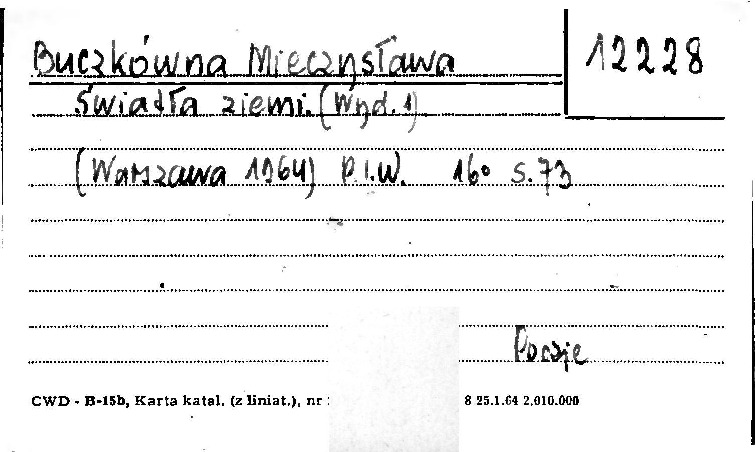 Buczkówna Mieczysława 12228
Światła ziemi. (Wyd. 1)
(Warszawa 1964) P.I.W. 16° s. 73
Poezje
CWD - B-15b, Karta katal. (z liniat.), nr 8 25.1.64 2.010.000